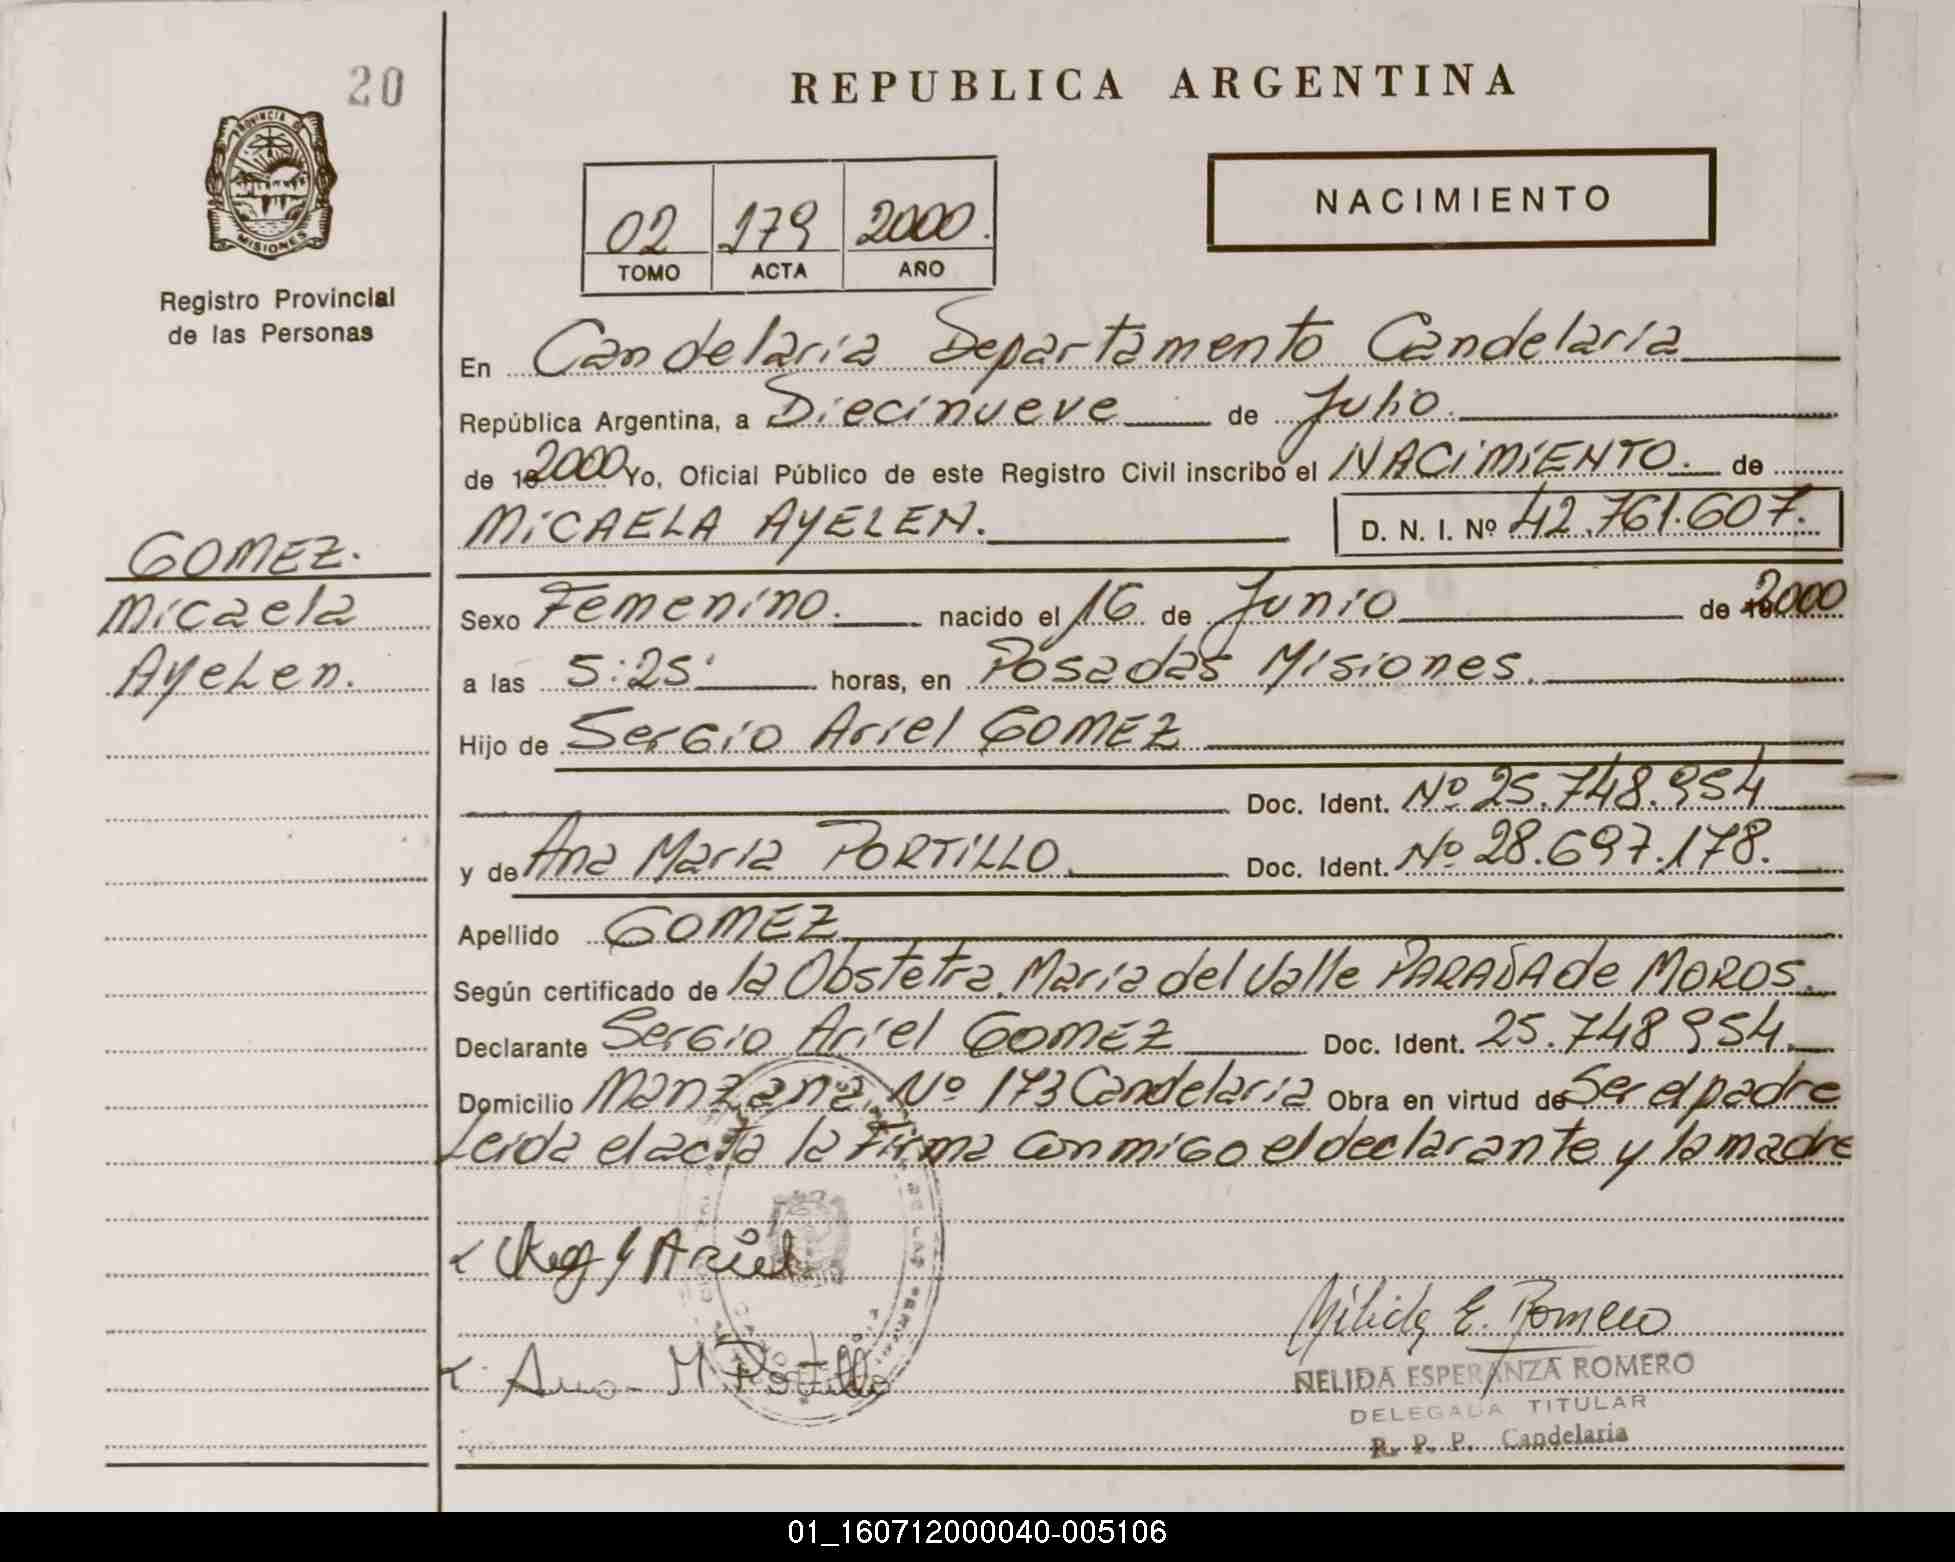 20
REPUBLICA ARGENTINA
PROVINCIA DE
MISIONES
Registro Provincial
de las Personas
02 179 2000.
TOMO ACTA AÑO
NACIMIENTO
En Candelaria Departamento Candelaria
República Argentina, a Diecinueve de Julio.
de 2000 Yo, Oficial Público de este Registro Civil inscribo el NACIMIENTO. de
MICAELA AYELEN. D. N. I. Nº 42.761.607.
GOMEZ.
Micaela
Ayelen.
Sexo Femenino. nacido el 16 de Junio de 2000
a las 5:25' horas, en Posadas Misiones.
Hijo de Sergio Ariel GOMEZ
Doc. Ident. Nº 25.748.954
y de Ana Maria PORTILLO. Doc. Ident. Nº 28.697.178.
Apellido GOMEZ
Según certificado de la Obstetra. María del Valle de MOROS.
Declarante Sergio Ariel GOMEZ Doc. Ident. 25.748 954.
Domicilio Manzana Nº 173 Candelaria Obra en virtud de Ser el padre
Leida el acta la Firma conmigo el declarante y la madre
Ariel
Ana M. Portillo
Nélida E. Romero
NELIDA ESPERANZA ROMERO
DELEGADA TITULAR
R. P. P. Candelaria
01_160712000040-005106